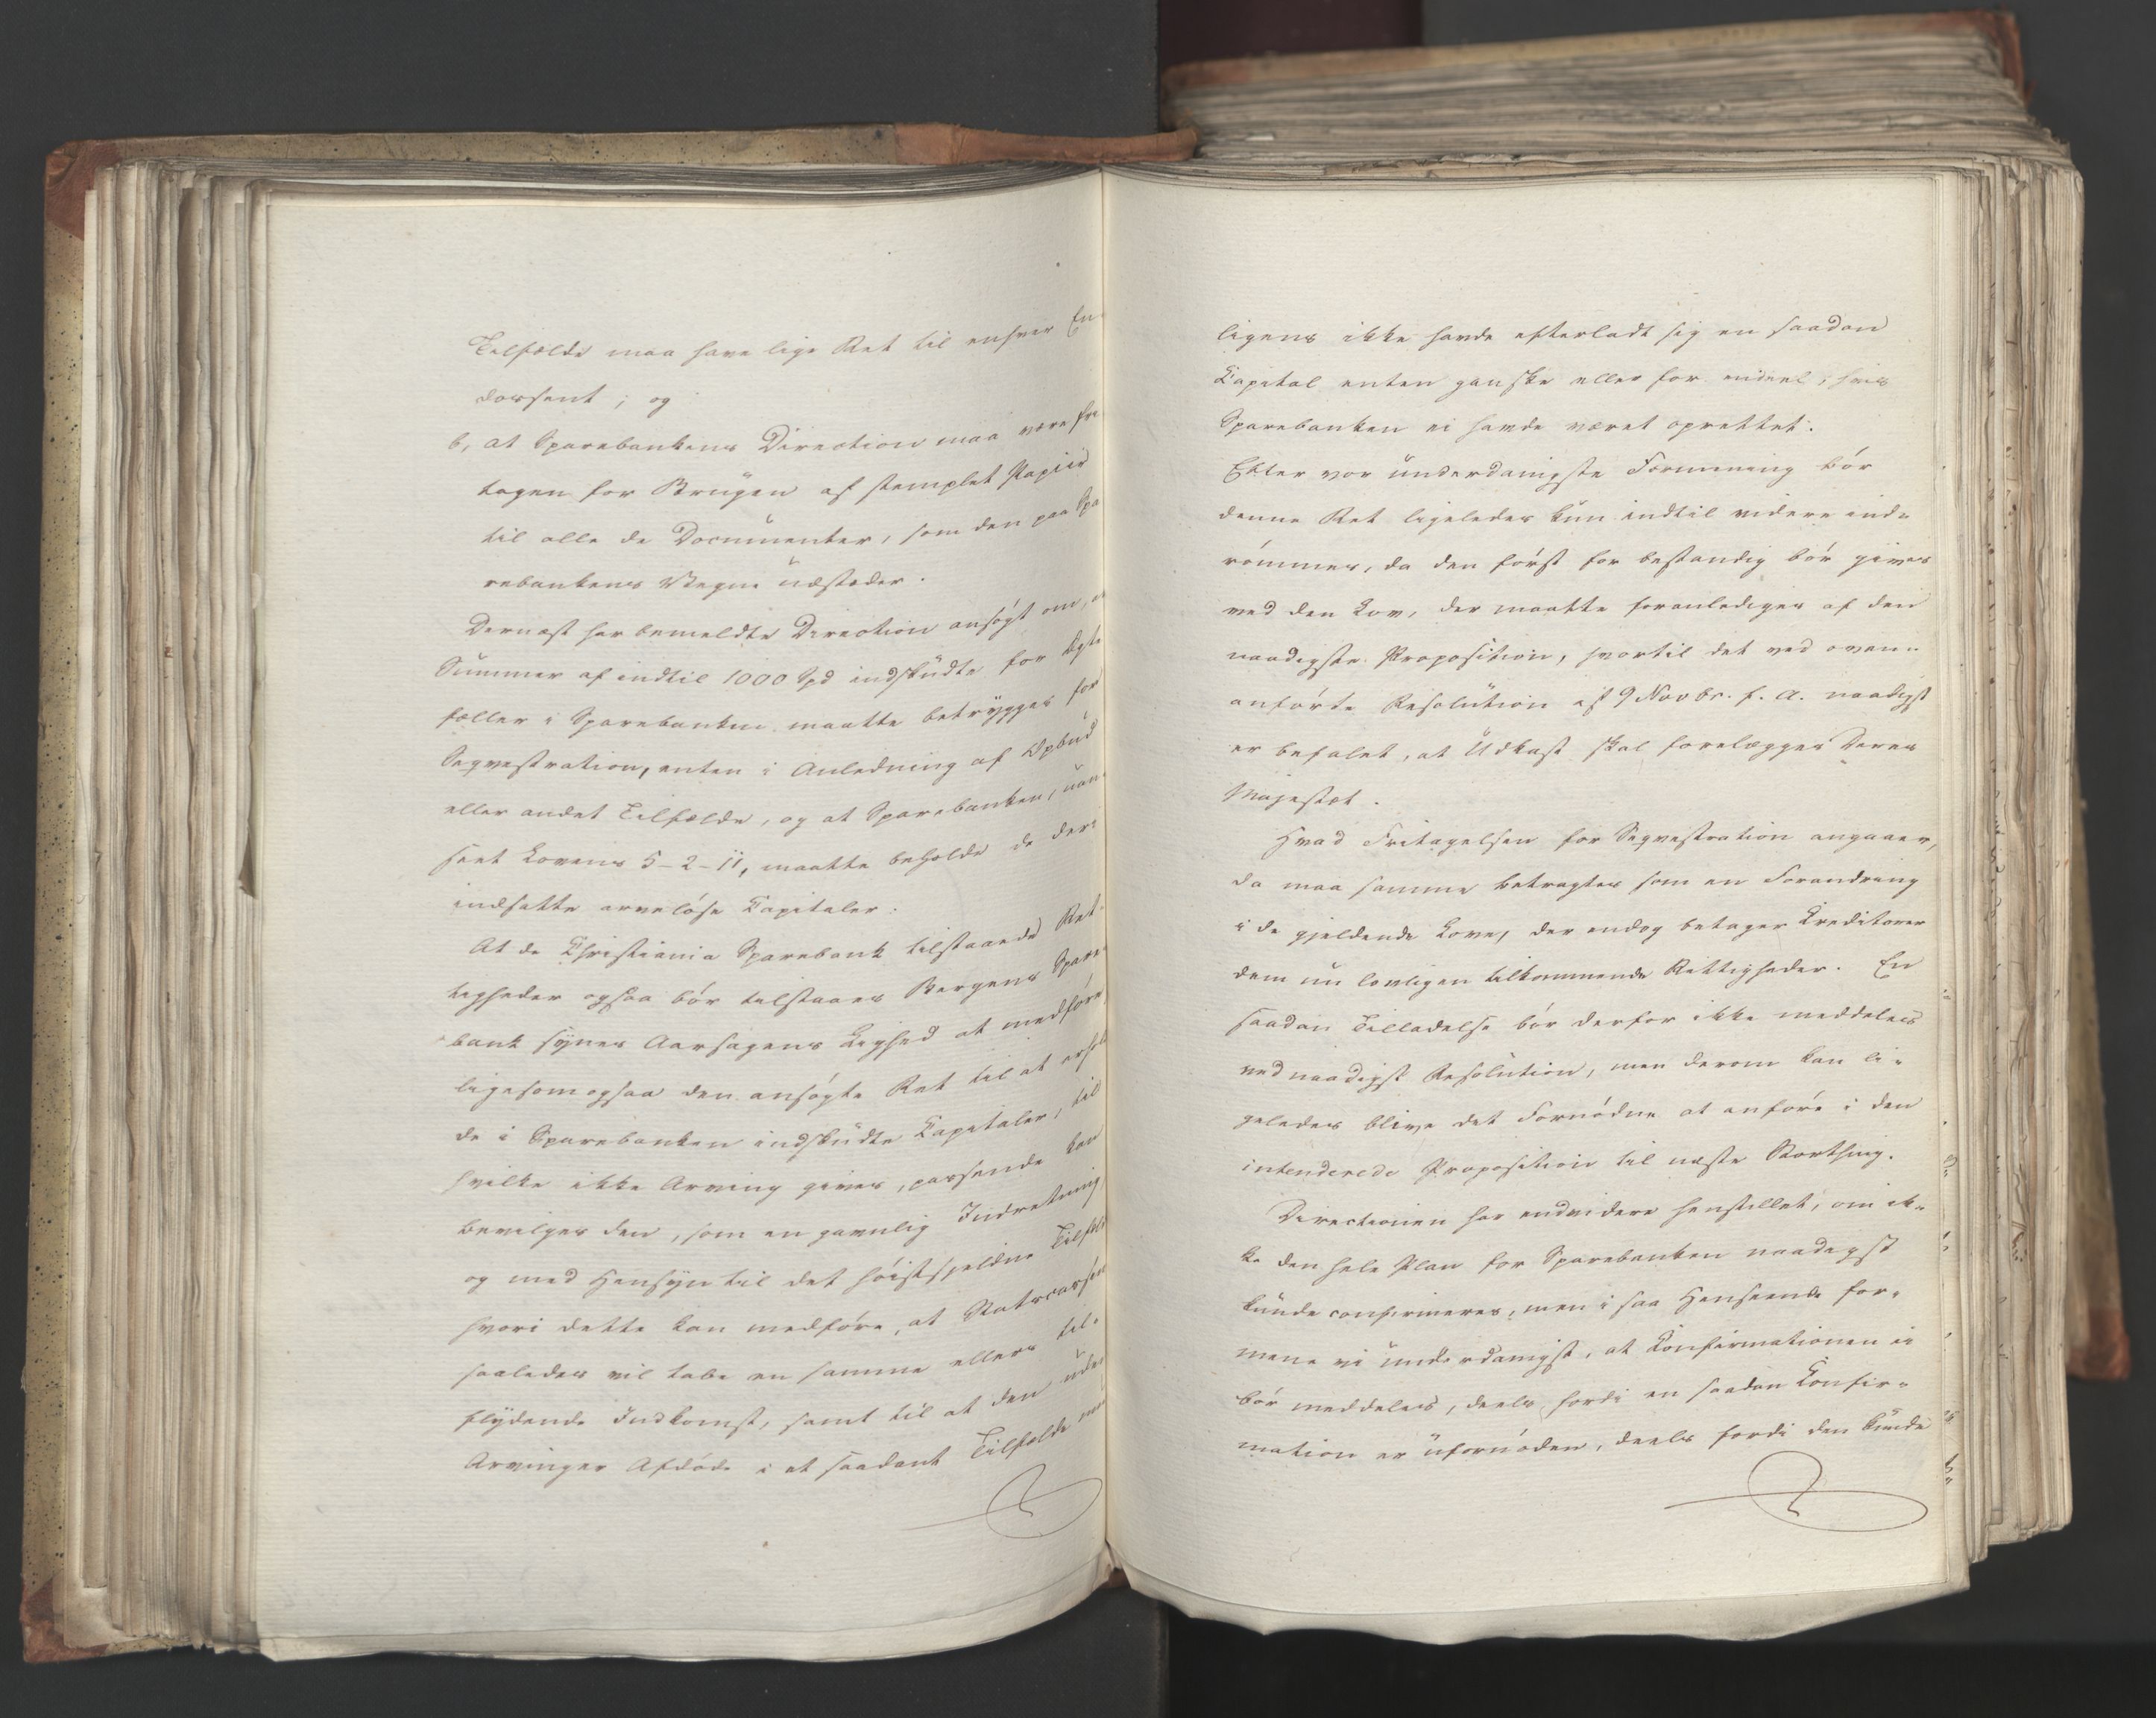 Tilfælde maa have lige Ret til enhver En-
dossent; og
b, at Sparebankens Direction maa være fri
tagen for Brugen af stemplet Papiir
til alle de Documenter, som den paa Spa
rebankens Vegne udsteder.
Dernæst har bemeldte Direction ansøgt om, a
Summer af indtil 1000 Spd indskudte for Ægte
fæller i Sparebanken maatte betrygges for
Seqvestration, enten i Anledning af Opbud
eller andet Tilfælde, og at Sparebanken, uan
seet Lovens 5-2-11, maatte beholde de deri
indsatte arveløse Capitaler.
At de Christiania Sparebank tilstaaede Ret-
tigheder ogsaa bør tilstaaes Bergens Spare-
bank synes Aarsagens Lighed at medføre,
ligesom ogsaa den ansøgte Ret til at erhol
de i Sparebanken indskudte Capitaler, til
hvilke ikke Arving gives, passende kan
bevilges den, som en gavnlig Indretning,
og med Hensyn til det høist sjeldne Tilfæld
hvori dette kan medføre, at Statscassen
saaledes vil tabe en samme ellers til-
flydende Indkomst, samt til at den uden
Arvinger Afdøde i et saadant Tilfælde
ligens ikke havde efterladt sig en saadan
Capital enten ganske eller for endeel, hvis
Sparebanken ei havde været oprettet.
Efter vor underdanigste Formening bør
denne Ret ligeledes kun indtil videre ind-
rømmes, da den først for bestandig bør gives
ved den Lov, der maatte foranlediges af den
naadigste Proposition, hvortil det ved oven-
anførte Resolution af 9 Novbr. f. A. naadigst
er befalet, at Udkast skal forelægges Deres
Majestæt.
Hvad Fritagelsen for Seqvestration angaaer,
da maa samme betragtes som en Forandring
i de gjeldende Love, der endog betager Creditorer
dem nu lovligen tilkommende Rettigheder. En
saadan Tilladelse bør derfor ikke meddeles
ved naadigst Resolution, men derom kan li-
geledes blive det Fornødne at anføre i den
intenderede Proposition til næste Storthing.
Directionen har endvidere henstillet, om ik-
ke den hele Plan for Sparebanken naadigst
kunde confirmeres, men i saa Henseende for-
mene vi underdanigst, at Confirmationen ei
bør meddeles, deels fordi en saadan Confir-
mation er ufornøden, deels fordi den kunde